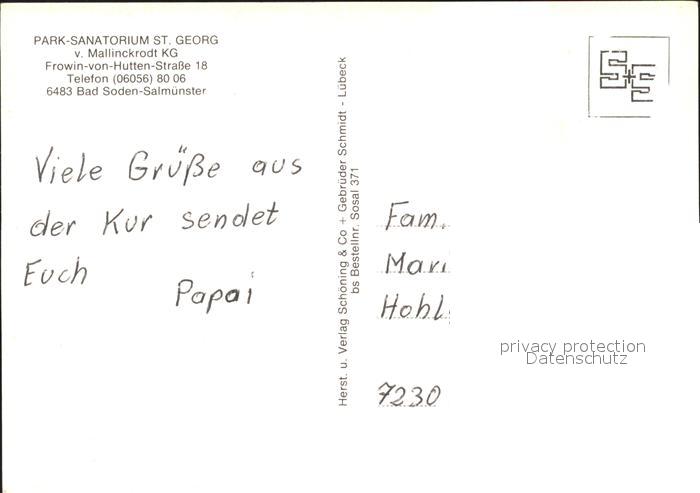 PARK-SANATORIUM ST. GEORG
v. Mallinckrodt KG
Frowin-von-Hutten-Straße 18
Telefon (06056) 80 06
6483 Bad Soden-Salmünster
Viele Grüße aus
der Kur sendet
Euch
Papai
Herst. u. Verlag Schöning & Co + Gebrüder Schmidt - Lübeck
bs Bestellnr. Sosal 371
Fam.
7230
privacy protection
Datenschutz